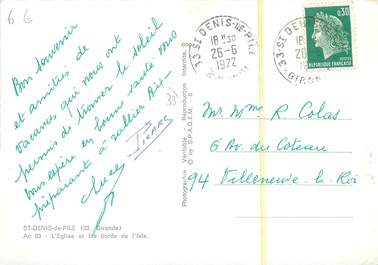 6 6
Bon souvenir
et amitiés de
vacances qui nous ont
permis de trouver le soleil
Vous espère en bonne santé vous
préparant à rallier
Pierre
33
ST-DENIS-de-PILE (33. Gironde)
Ac 83 - L'Eglise et les bords de l'Isle.
Photographie Véritable - Reproduction Interdite
© by S.P.A.D.E.M.
33 ST DENIS-DE-PILE
18H30
26-6
1972
GIRONDE
33 ST DENIS
18H
26
19
GIRONDE
0,30
REPUBLIQUE FRANÇAISE
Mr. Mme R. Colas
6 Av. du Coteau
94 Villeneuve-le-Roi